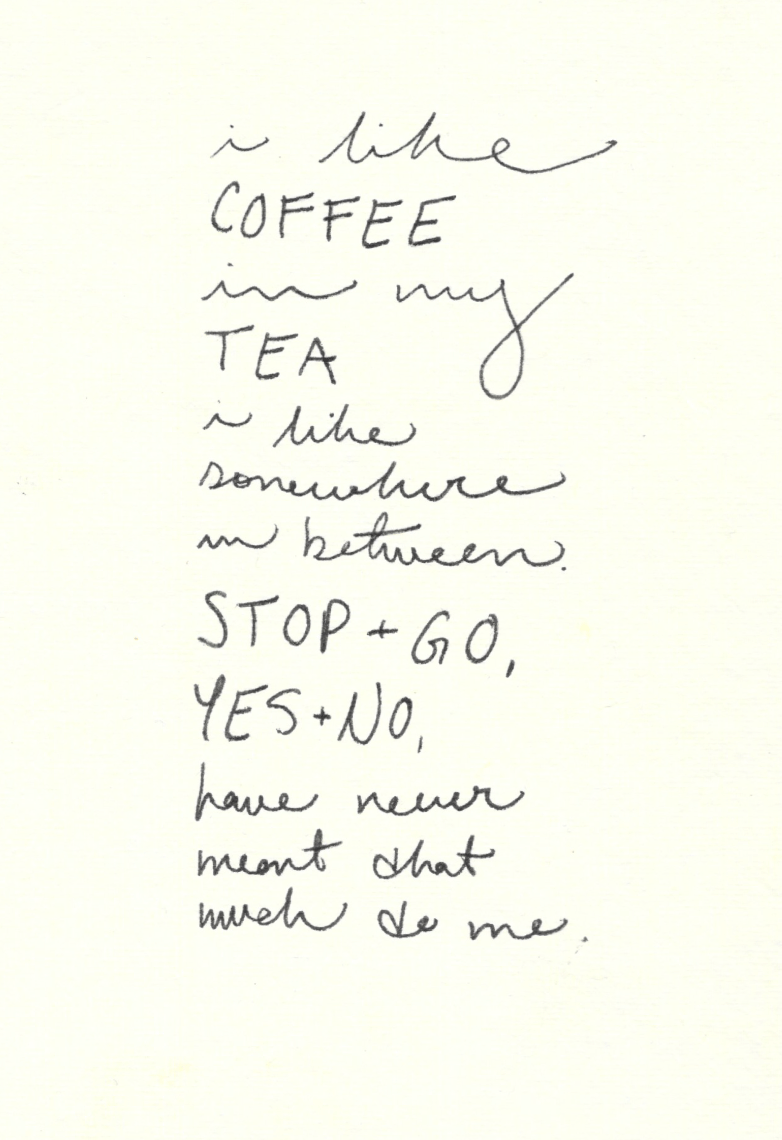 i like
COFFEE
in my
TEA
i like
somewhere
in between.
STOP + GO,
YES + NO,
have never
meant that
much to me.